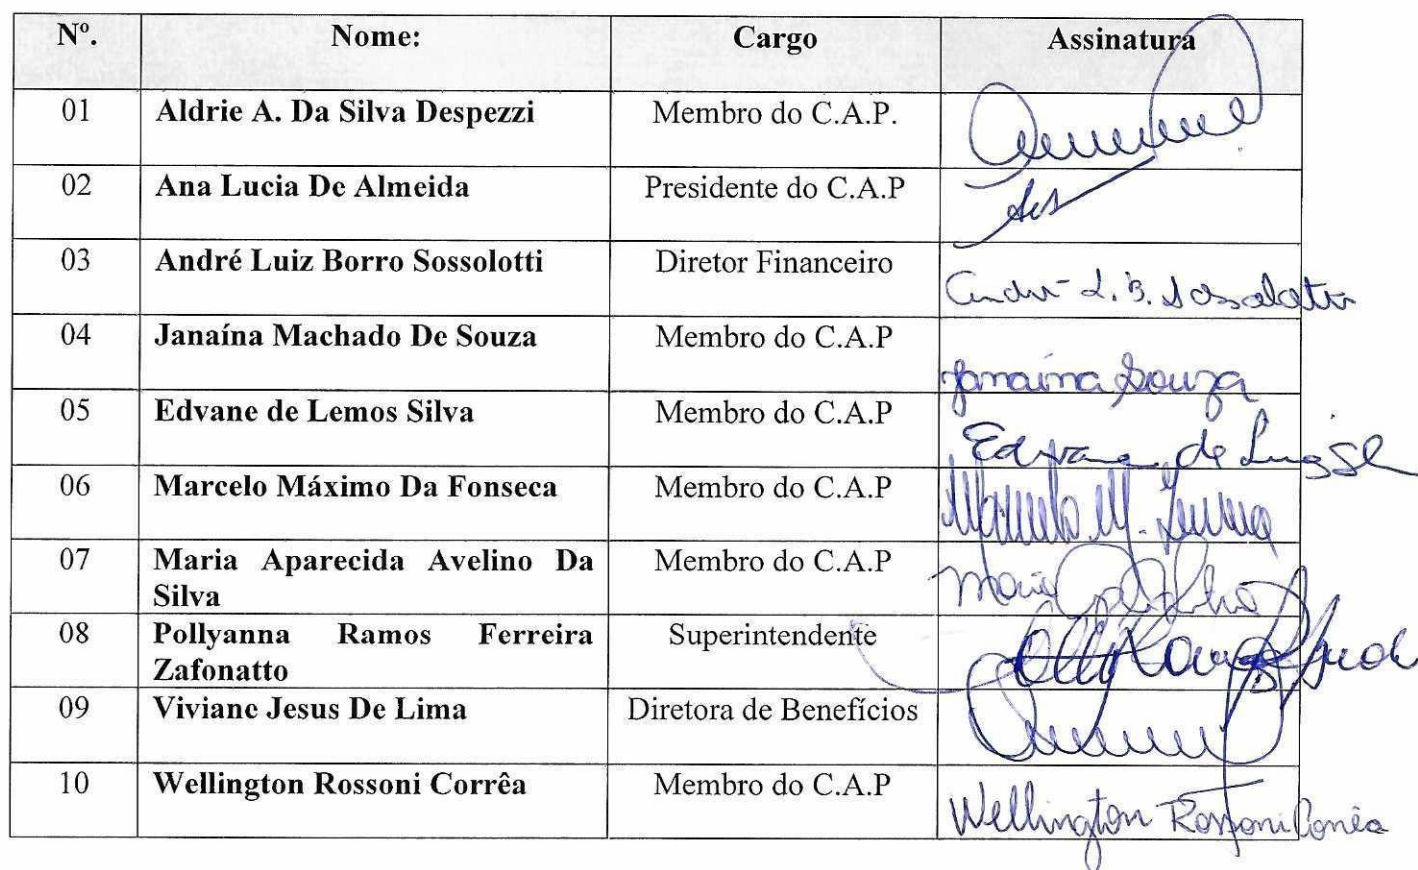 Nº. Nome: Cargo Assinatura
01 Aldrie A. Da Silva Despezzi Membro do C.A.P.
02 Ana Lucia De Almeida Presidente do C.A.P
03 André Luiz Borro Sossolotti Diretor Financeiro André L. B. Sossolotti
04 Janaína Machado De Souza Membro do C.A.P Janaina Souza
05 Edvane de Lemos Silva Membro do C.A.P Edvane de
06 Marcelo Máximo Da Fonseca Membro do C.A.P Marcelo M.
07 Maria Aparecida Avelino Da Membro do C.A.P Maria
Silva
08 Pollyanna Ramos Ferreira Superintendente
Zafonatto
09 Viviane Jesus De Lima Diretora de Benefícios
10 Wellington Rossoni Corrêa Membro do C.A.P Wellington Rossoni Corrêa